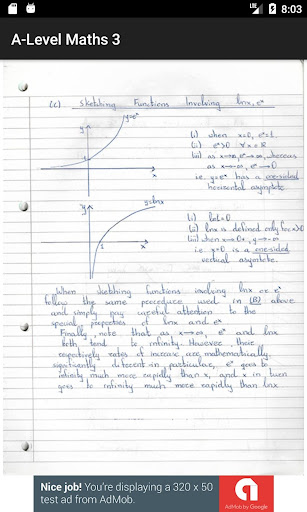 8:03
A-Level Maths 3
(c) Sketching Functions Involving lnx, eˣ
y=eˣ
y
1
x
(i) when x=0, eˣ=1
(ii) eˣ>0 ∀ x ∈ ℝ
(iii) as x→∞, eˣ→∞, whereas
as x→-∞, eˣ→0
i.e. y=eˣ has a one-sided
horizontal asymptote
y
y=lnx
1
x
(i) ln1=0
(ii) lnx is defined only for x>0
(iii) when x→0+, y→-∞
i.e. x=0 is a one-sided
vertical asymptote.
When sketching functions involving lnx or eˣ
follow the same procedure used in (B) above
and simply pay careful attention to the
special properties of lnx and eˣ.
Finally, note that as x→∞, eˣ and lnx
both tend to infinity. However, their
respectively rates of increase are, mathematically,
significantly different: in particular, eˣ goes to
infinity much more rapidly than x, and x in turn
goes to infinity much more rapidly than lnx.
Nice job! You're displaying a 320 x 50
test ad from AdMob.
AdMob by Google